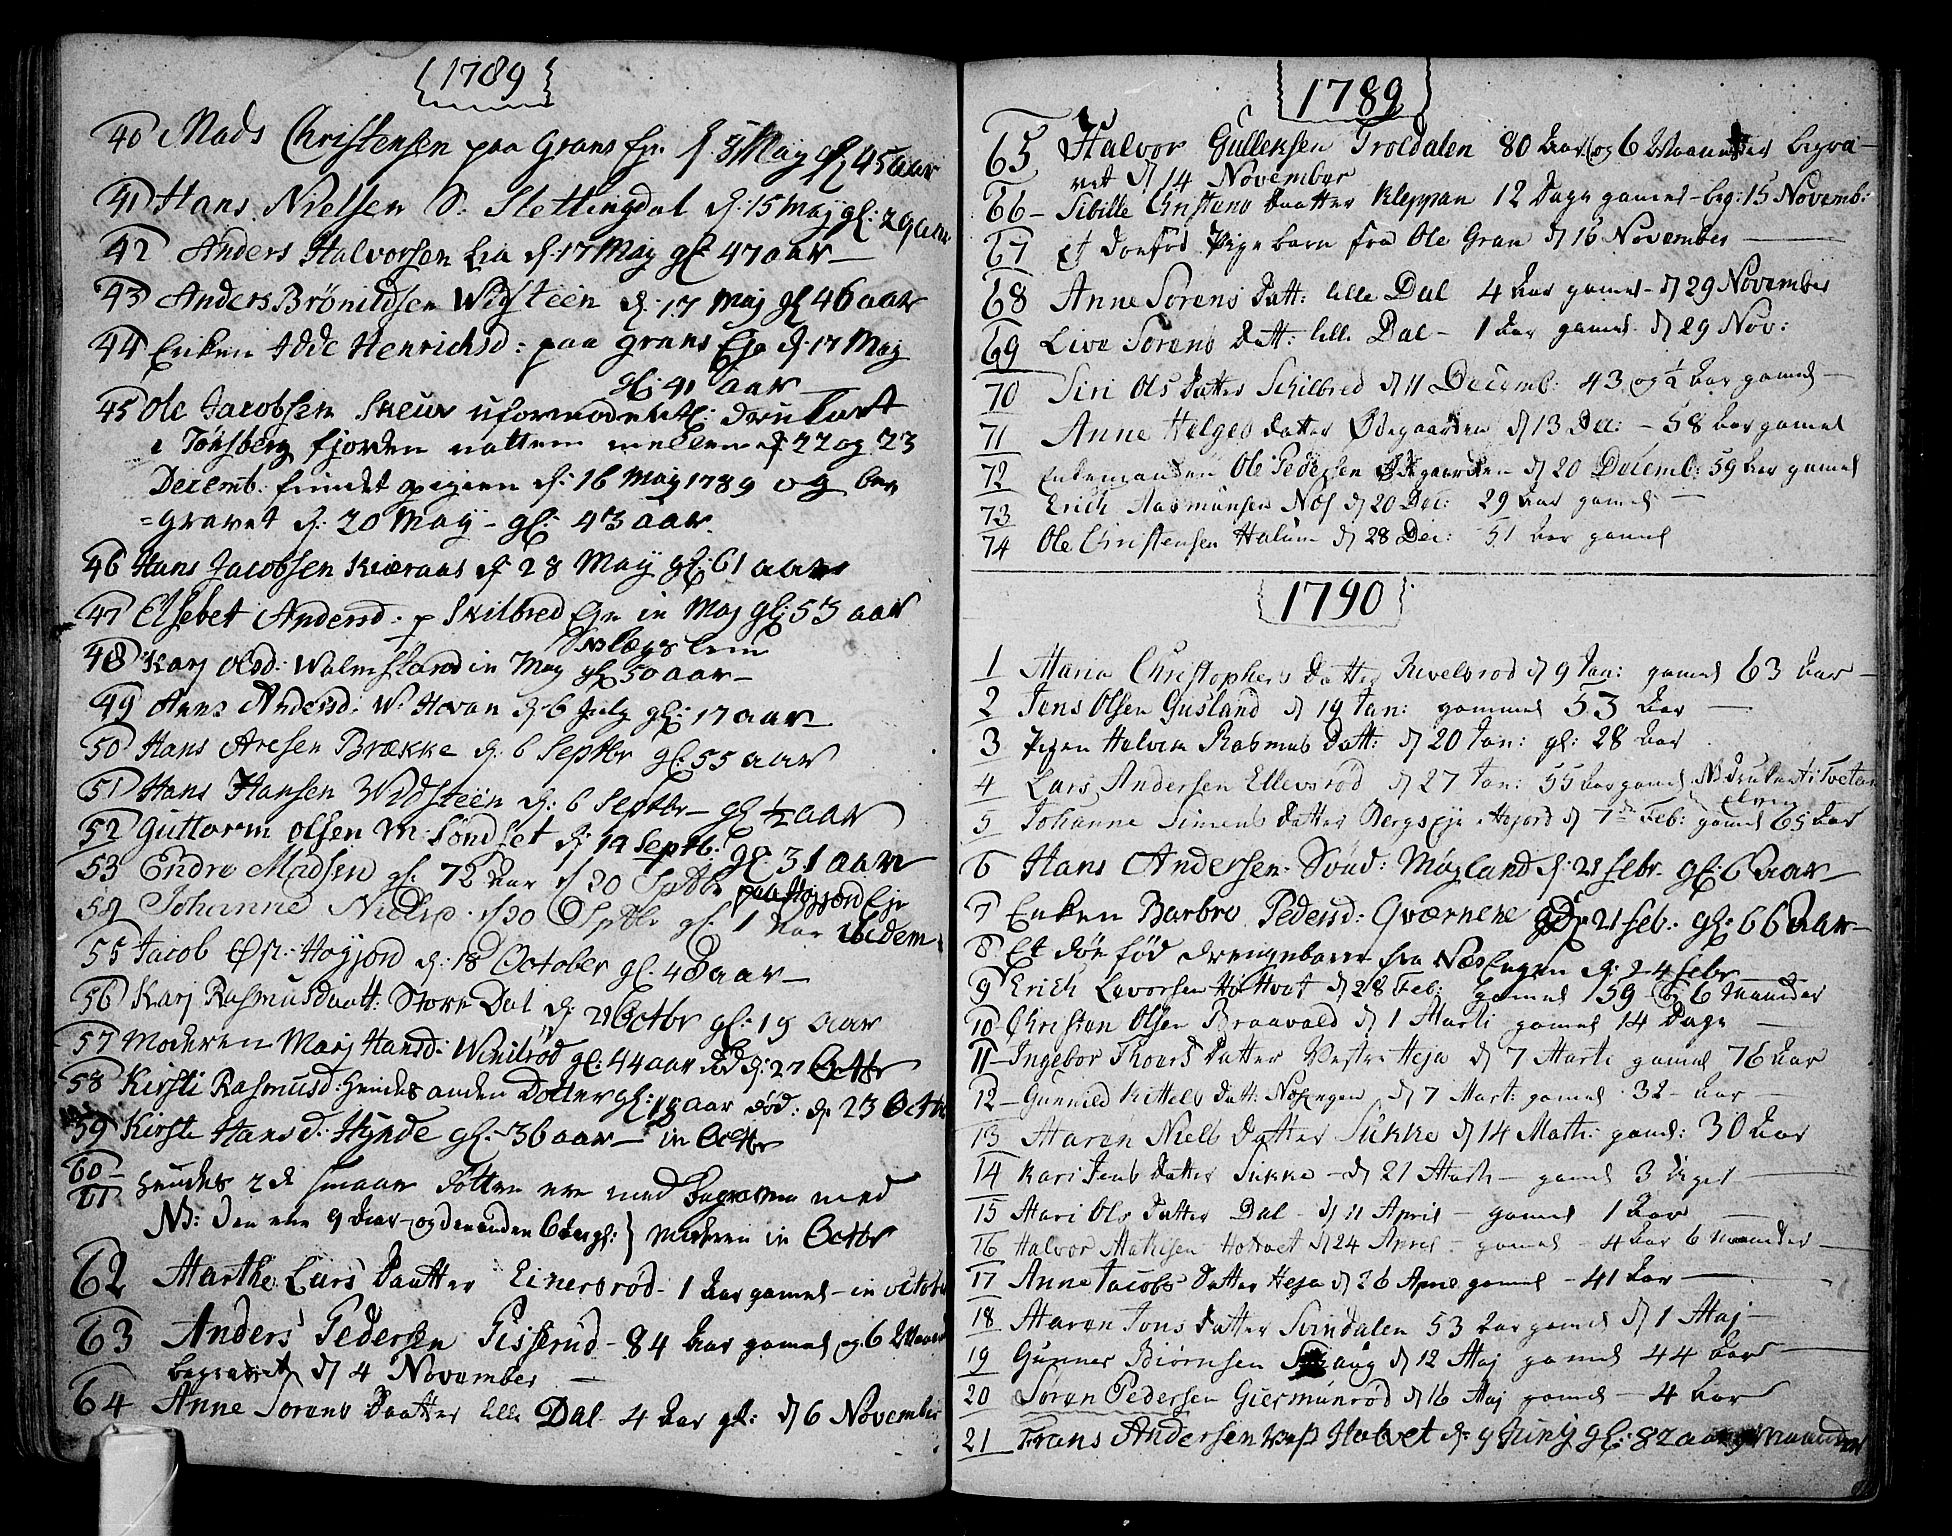 1789
40 Mads Christensen paa Grans Eje d. 3 May gl. 45 aar
41 Hans Nielsen S. Slettingdal d. 15 Maj gl. 29 aar
42 Anders Halvorsen Lia d. 17 May gl. 47 aar
43 Anders Brönildsen Widsteen d. 17 Maj gl. 46 aar
44 Enken Idde Henrichsd: paa Grans Eje d. 17 Maj
gl: 41 aar
45 Ole Jacobsen Skeün uformodentl: druknet
i Tönsberg fjorden natten mellem d. 22 og 23
Decemb: fundet igien d. 16 May 1789 og be
=gravet d. 20 May - gl: 43 aar.
46 Hans Jacobsen Kiæraas d. 28 May gl. 61 aar
47 Elsebet Andersd: p Skilbred Eje in Maj gl: 53 aar
48 Karj Olsd: in May gl 50 aar
49 Hans Andersd: W. Hovan d. 6 July gl: 17 aar
50 Hans Aresen Brække d. 6 Septbr gl. 55 aar
51 Hans Hansen Widsteen d: 6 Septbr - gl ½ aar
52 Guttorm Olsen M. Söndset d. 14 Septb: gl. 31 aar
53 Endre Madsen gl. 72 Aar d 20 Sptbr paa Högjord Eje
54 Johanne Nielsd. d 20 Sptbr gl. 1 Aar ibidem
55 Jacob Øst: Högjord d. 18 October gl. 48 aar
56 Karj Rasmusdaatt: Store Dal d. 21 Octbr gl: 19 aar
57 Moderen Marj Hansd: Winilröd gl: 44 aar död d: 27 Octbr
58 Kirsti Rasmusd: hendes anden Dotter gl: 18 aar död: d. 23 Octb
59 Kirste Hansd: Hynde gl. 36 aar in Octbr
60
61 hendes 2de smaae Döttre ere med begraven med
NB: Den ene 9 Aar og den anden 6 Aar gl: } Moderen in Octbr
62 Marthe Lars Daatter Einersröd 1 Aar gamel - in october
63 Anders Pedersen Pisserud - 84 Aar gamel og 6 Maan
begravet d 4 November
64 Anne Sörens Daatter lille Dal 4 Aar gl: d 6 November
1789
65 Halvor Gulleksen Troldalen 80 Aar og 6 Maaneder begra-
vet d 14 November
66 Sibille Cristens Daatter Kleppan 12 Dage gamel - beg: 15 Novemb:
67 et dodföd Pigebarn fra Ole Gran d 16 November
68 Anne Sörens Datt: lille Dal 4 Aar gamel - d 29 November
69 Live Sörens Datt: lille Dal - 1 Aar gamel d 29 Nov:
70 Siri Ols Datter Schilbred d 11 Decemb: 43 og ½ Aar gamel
71 Anne Helges Datter Ødegaarden d 13 Dec: - 58 Aar gamel
72 Enkemanden Ole Pedersen Ødegaarden d 20 Decemb: 59 Aar gamel
73 Erich Aasmunsen Nös d 20 Dec: 29 Aar gamel
74 Ole Christensen Halum d 28 Dec: 51 Aar gamel
1790
1 Maria Christophers Datter Revelsrod d 9 Jan: gamel 63 Aar
2 Jens Olsen Gusland d 19 Jan: gammel 53 Aar
3 Pigen Halvine Rasmus Datt: d 20 Jan: gl: 28 Aar
4 Lars Andersen Ellevsröd d 27 Jan: 55 Aar gamel NB druknet i Tvetan
elven
5 Johanne Simens Datter Bergs Eje i Højord d 7de Feb: gamel 65 Aar
6 Hans Andersen Svend: Möyland d. 21 febr. gl: 6 aar
7 Enken Barbro Pedersd: Qværnene d. 21 feb: gl: 66 Aar
8 Et död föd drengebarn fra Næs Engen d. 24 febr
9 Erich Levorsen Hotvet d 28 Feb: gamel 59 og 6 Maaneder
10 Christan Olsen Braavold d 1 Marti gamel 14 Dage
11 Ingebor Thoers Datter Vestre Heja d 7 Marti gamel 76 Aar
12 Gunnild Kittels Datt: Nösengen d 7 Mart: gamel 32 Aar
13 Maren Niels Datter Sukke d 14 Mart: gamel: 30 Aar
14 Kari Jens Datter Sukke - d 21 Marti - gamel 3 Uger
15 Mari Ols Datter Dal - d 11 April - gamel 1 Aar
16 Halvor Mathisen Hotvet d 24 April - gamel - 4 Aar 6 Maaneder
17 Anne Jacobs Datter Heja d 26 Apríl gamel - 41 Aar
18 Maren Jons Datter Svindalen 53 Aar gamel d 1 Maj
19 Gunner Biörnsen d 12 Maj gamel 44 Aar
20 Sören Pedersen Giermünröd d 16 Maj gamel - 4 Aar
21 Frans Andersen Holvet d. 9 Juny gl: 82 aar maaneder